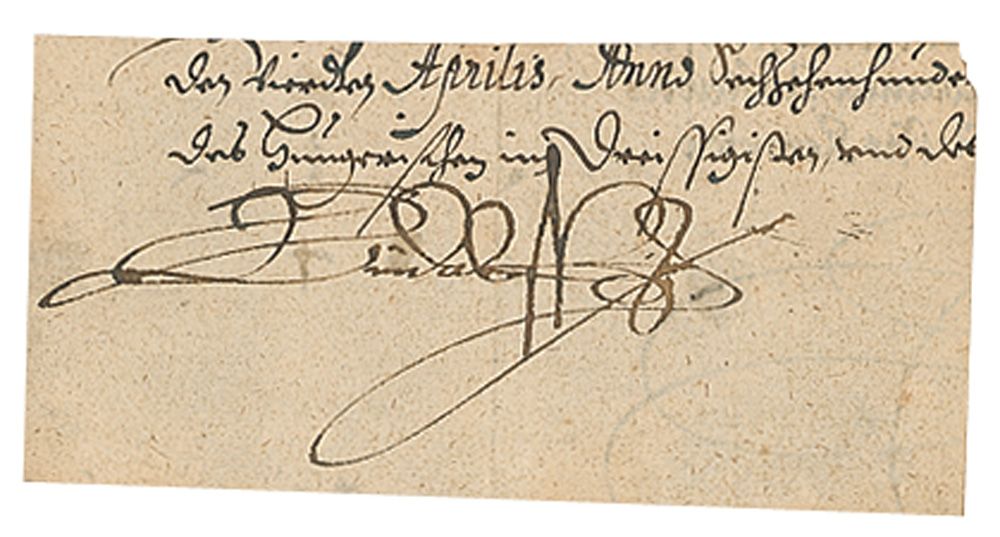 den Vierdten Aprilis, Anno Sechzehenhunde
des Hungerischen im Dreissigisten, vnd des